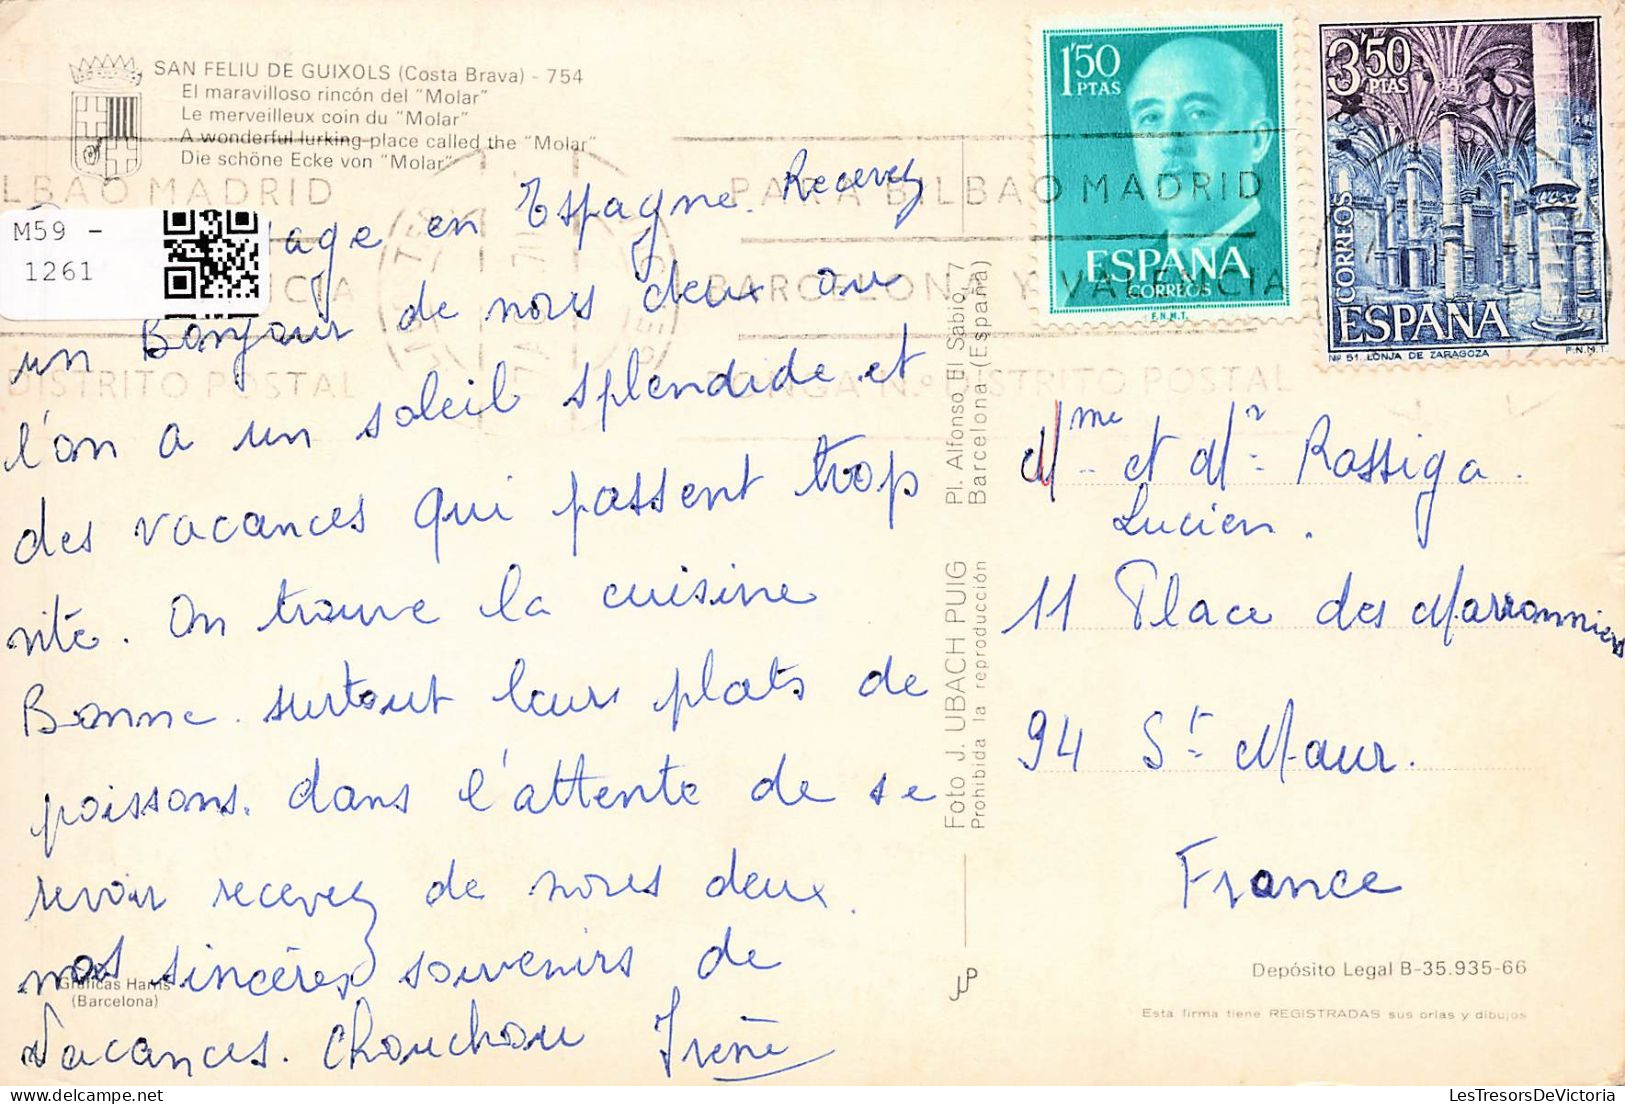 SAN FELIU DE GUIXOLS (Costa Brava) - 754
El maravilloso rincón del "Molar"
Le merveilleux coin du "Molar"
A wonderful lurking-place called the "Molar"
Die schöne Ecke von "Molar"
M59 -
1261
age en Espagne. Recevez
un Bonjour de nous deux on
l'on a un soleil splendide et
des vacances qui passent trop
vite. On trouve la cuisine
Bonne. surtout leurs plats de
poissons. dans l'attente de se
revoir recevez de nous deux.
nos sincères souvenirs de
Vacances. Chouchou Irène
Gráficas Harris
(Barcelona)
Foto J. UBACH PUIG Pl. Alfonso El Sabio, 7
Prohibida la reproducción Barcelona-(España)
1'50
PTAS
ESPAÑA
CORREOS
F.N.M.T.
3'50
PTAS
CORREOS
ESPAÑA
Nº 51. LONJA DE ZARAGOZA F.N.M.T.
LBAO MADRID
CIA
DISTRITO POSTAL
PARA BILBAO MADRID
BARCELONA Y VALENCIA
PONGA N.º DISTRITO POSTAL
Mme et Mr Rossiga
Lucien.
11 Place des Marronniers
94 St Maur.
France
Depósito Legal B-35.935-66
Esta firma tiene REGISTRADAS sus orlas y dibujos
LesTresorsDeVictoria